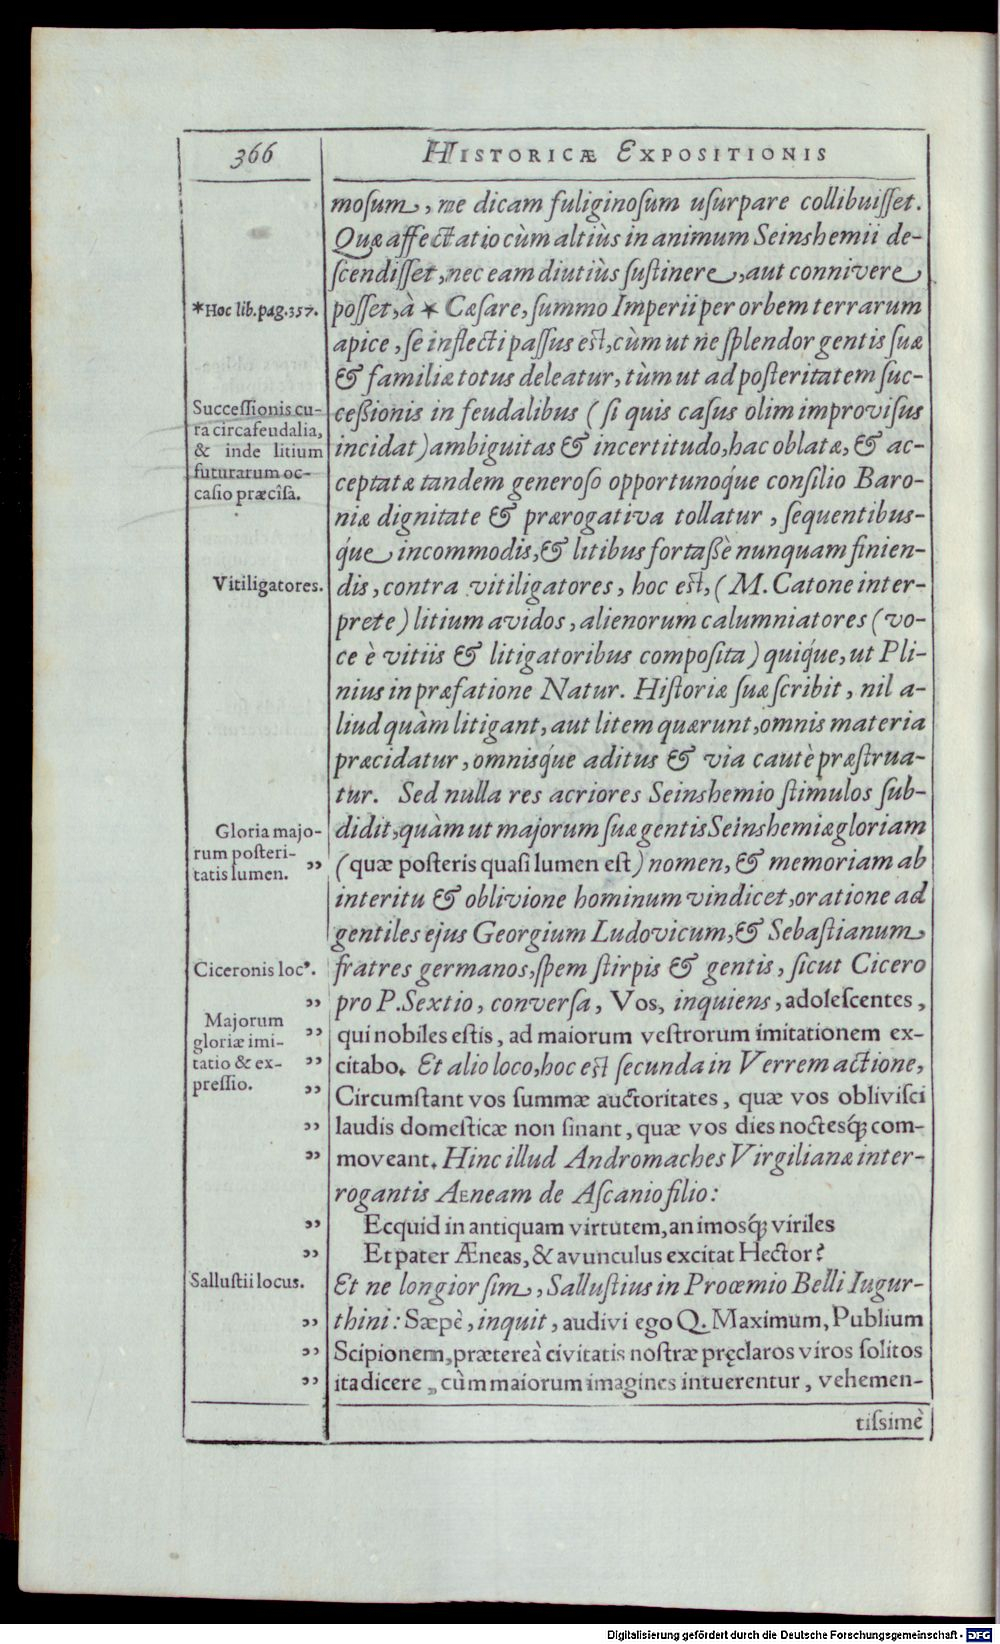 366
HISTORICÆ EXPOSITIONIS
mosum, ne dicam fuliginosum usurpare collibuisset.
Quæ affectatio cùm altiùs in animum Seinshemii de-
scendisset, nec eam diutiùs sustinere, aut connivere
*Hoc lib. pag. 357.
posset, à * Cæsare, summo Imperii per orbem terrarum
apice, se inflecti passus est, cùm ut ne splendor gentis suæ
& familiæ totus deleatur, tùm ut ad posteritatem suc-
Successionis cu-
ra circa feudalia,
& inde litium
futurarum oc-
casio præcîsa.
ceßionis in feudalibus (si quis casus olim improvisus
incidat) ambiguitas & incertitudo, hac oblatæ, & ac-
ceptatæ tandem generoso opportunoq́ue consilio Baro-
niæ dignitate & prærogativa tollatur, sequentibus-
q́ue incommodis, & litibus fortaßè nunquam finien-
Vitiligatores.
dis, contra vitiligatores, hoc est, (M. Catone inter-
prete) litium avidos, alienorum calumniatores (vo-
ce è vitiis & litigatoribus composita) quiq́ue, ut Pli-
nius in præfatione Natur. Historiæ suæ scribit, nil a-
liud quàm litigant, aut litem quærunt, omnis materia
præcidatur, omnisq́ue aditus & via cautè præstrua-
tur. Sed nulla res acriores Seinshemio stimulos sub-
Gloria majo-
rum posteri-
tatis lumen.
didit, quàm ut majorum suæ gentis Seinshemiæ gloriam
„ (quæ posteris quasi lumen est) nomen, & memoriam ab
interitu & oblivione hominum vindicet, oratione ad
gentiles ejus Georgium Ludovicum, & Sebastianum
Ciceronis loc⁹.
fratres germanos, spem stirpis & gentis, sicut Cicero
„ pro P. Sextio, conversa, Vos, inquiens, adolescentes,
Majorum
gloriæ imi-
tatio & ex-
pressio.
„ qui nobiles estis, ad maiorum vestrorum imitationem ex-
„ citabo. Et alio loco, hoc est secunda in Verrem actione,
„ Circumstant vos summæ auctoritates, quæ vos oblivisci
„ laudis domesticæ non sinant, quæ vos dies noctesq́; com-
„ moveant. Hinc illud Andromaches Virgilianæ inter-
rogantis Aeneam de Ascanio filio:
„ Ecquid in antiquam virtutem, animosq́; viriles
„ Et pater Æneas, & avunculus excitat Hector?
Sallustii locus.
Et ne longior sim, Sallustius in Proœmio Belli Iugur-
„ thini: Sæpè, inquit, audivi ego Q. Maximum, Publium
„ Scipionem, prætereà civitatis nostræ pręclaros viros solitos
„ ita dicere, cùm maiorum imagines intuerentur, vehemen-
tissimè
Digitalisierung gefördert durch die Deutsche Forschungsgemeinschaft - DFG